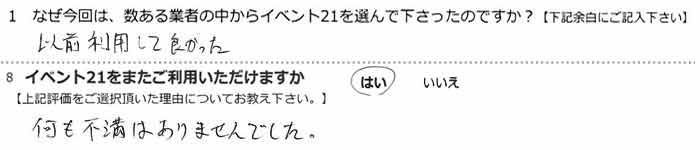 1 なぜ今回は、数ある業者の中からイベント21を選んで下さったのですか？【下記余白にご記入下さい】
以前利用して良かった
8 イベント21をまたご利用いただけますか はい いいえ
【上記評価をご選択頂いた理由についてお教え下さい。】
何も不満はありませんでした。